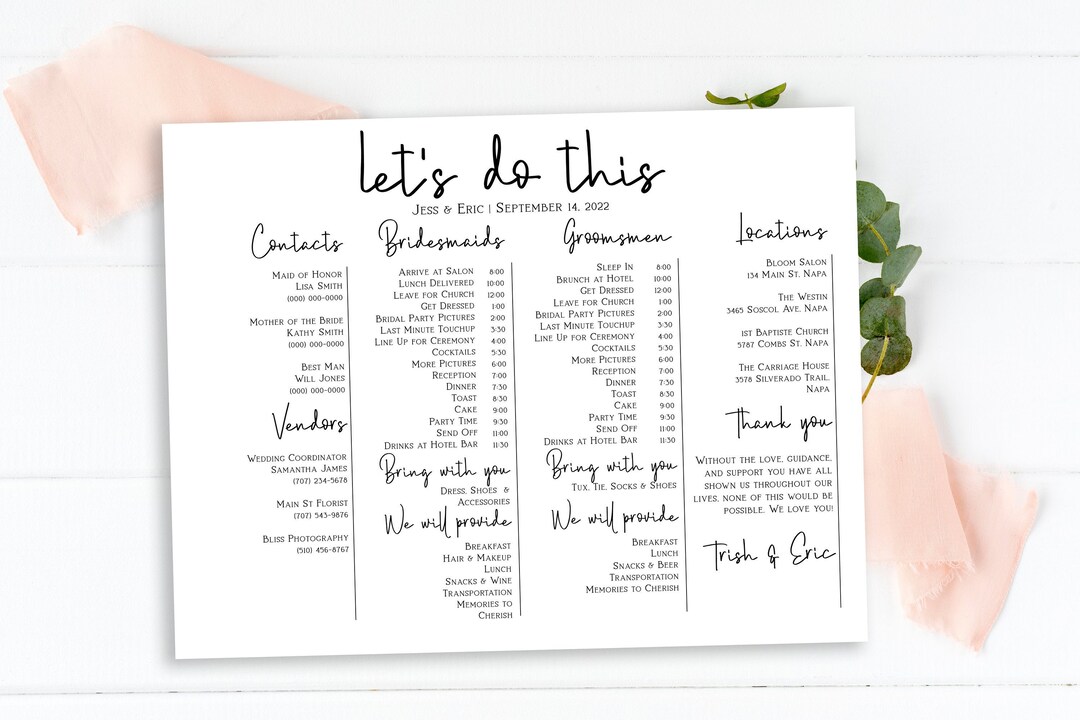 let's do this
Jess & Eric | September 14, 2022
Contacts
Maid of Honor
Lisa Smith
(000) 000-0000
Mother of the Bride
Kathy Smith
(000) 000-0000
Best Man
Will Jones
(000) 000-0000
Vendors
Wedding Coordinator
Samantha James
(707) 234-5678
Main St Florist
(707) 543-9876
Bliss Photography
(510) 456-8767
Bridesmaids
Arrive at Salon 8:00
Lunch Delivered 10:00
Leave for Church 12:00
Get Dressed 1:00
Bridal Party Pictures 2:00
Last Minute Touchup 3:30
Line Up for Ceremony 4:00
Cocktails 5:30
More Pictures 6:00
Reception 7:00
Dinner 7:30
Toast 8:30
Cake 9:00
Party Time 9:30
Send Off 11:00
Drinks at Hotel Bar 11:30
Bring with you
Dress, Shoes &
Accessories
We will provide
Breakfast
Hair & Makeup
Lunch
Snacks & Wine
Transportation
Memories to
Cherish
Groomsmen
Sleep In 8:00
Brunch at Hotel 10:00
Get Dressed 12:00
Leave for Church 1:00
Bridal Party Pictures 2:00
Last Minute Touchup 3:30
Line Up for Ceremony 4:00
Cocktails 5:30
More Pictures 6:00
Reception 7:00
Dinner 7:30
Toast 8:30
Cake 9:00
Party Time 9:30
Send Off 11:00
Drinks at Hotel Bar 11:30
Bring with you
Tux, Tie, Socks & Shoes
We will provide
Breakfast
Lunch
Snacks & Beer
Transportation
Memories to Cherish
Locations
Bloom Salon
134 Main St, Napa
The Westin
3465 Soscol Ave, Napa
1st Baptiste Church
5787 Combs St, Napa
The Carriage House
3578 Silverado Trail,
Napa
Thank you
Without the love, guidance,
and support you have all
shown us throughout our
lives, none of this would be
possible. We love you!
Trish & Eric